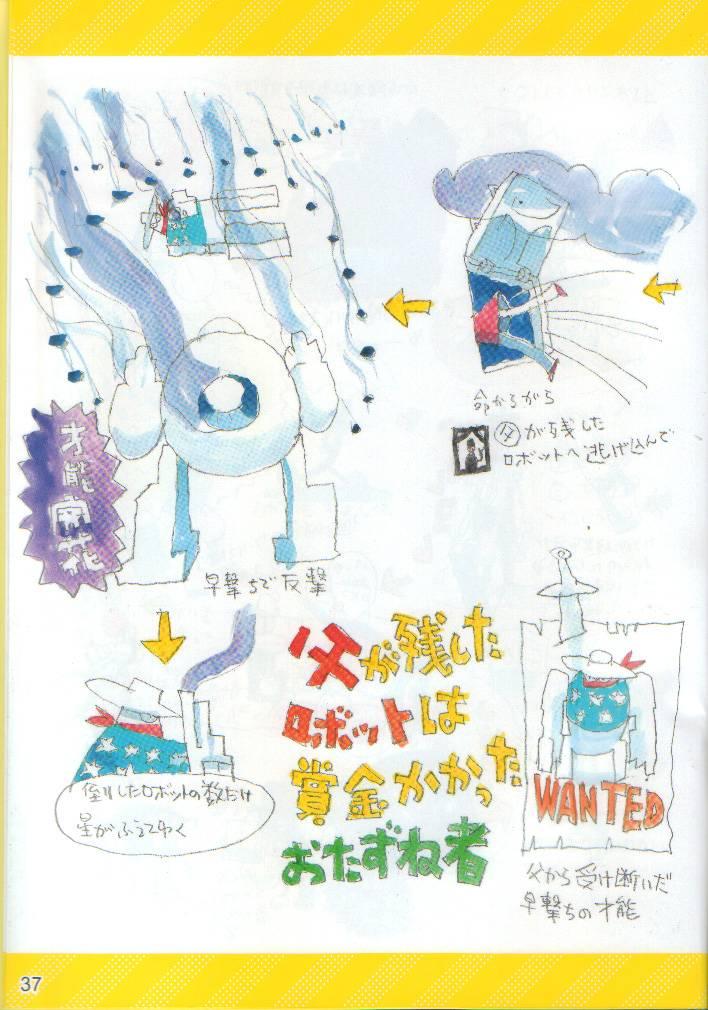 命からがら
父が残した
ロボットへ逃げ込んで
早撃ちで反撃
才能開花
倒したロボットの数だけ
星がふえてゆく
父が残した
ロボットは
賞金かかった
おたずね者
WANTED
父から受け断いだ
早撃ちの才能
37